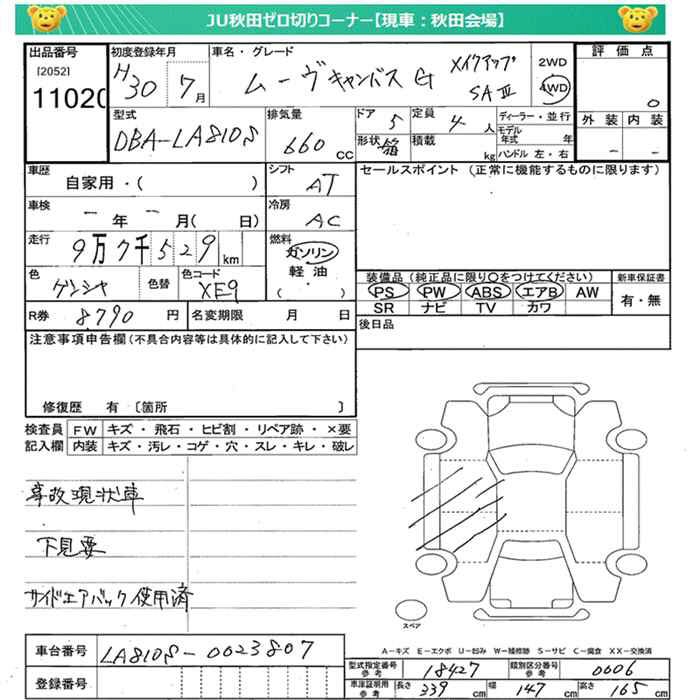 JU秋田ゼロ切りコーナー【現車：秋田会場】
出品番号
[2052]
11020
初度登録年月
H30 7月
車名・グレード
ムーヴキャンバス G メイクアップ SAⅢ
2WD
4WD
評価点
0
外装 内装
- -
型式
DBA-LA810S
排気量
660 CC
ドア 5
定員 4 人
形状 箱
積載 kg
ディーラー・並行
モデル年式 年
ハンドル 左・右
車歴
自家用・( )
シフト
AT
セールスポイント (正常に機能するものに限ります)
車検
- 年 - 月( 日)
冷房
AC
走行
9万7千529km
燃料
ガソリン
軽油
( ・ )
色
ゲンシャ
色替
色コード
XE9
装備品 (純正品に限り○をつけてください)
PS PW ABS エアB AW
SR ナビ TV カワ
新車保証書
有・無
R券 8,790 円
名変期限 月 日
後日品
注意事項申告欄(不具合内容等は具体的に記入して下さい)
修復歴 有 〔箇所 〕
検査員記入欄
FW キズ・飛石・ヒビ割・リペア跡・×要
内装 キズ・汚レ・コゲ・穴・スレ・キレ・破レ
事故現状車
下見要
サイドエアバック使用済
スペア
A－キズ E－エクボ U－凹み W－補修跡 S－サビ C－腐食 XX－交換済
車台番号 LA810S-0023807
登録番号
型式指定番号 参考 18427
類別区分番号 参考 0006
車庫証明用 参考 長さ 339 cm 幅 147 cm 高さ 165 cm